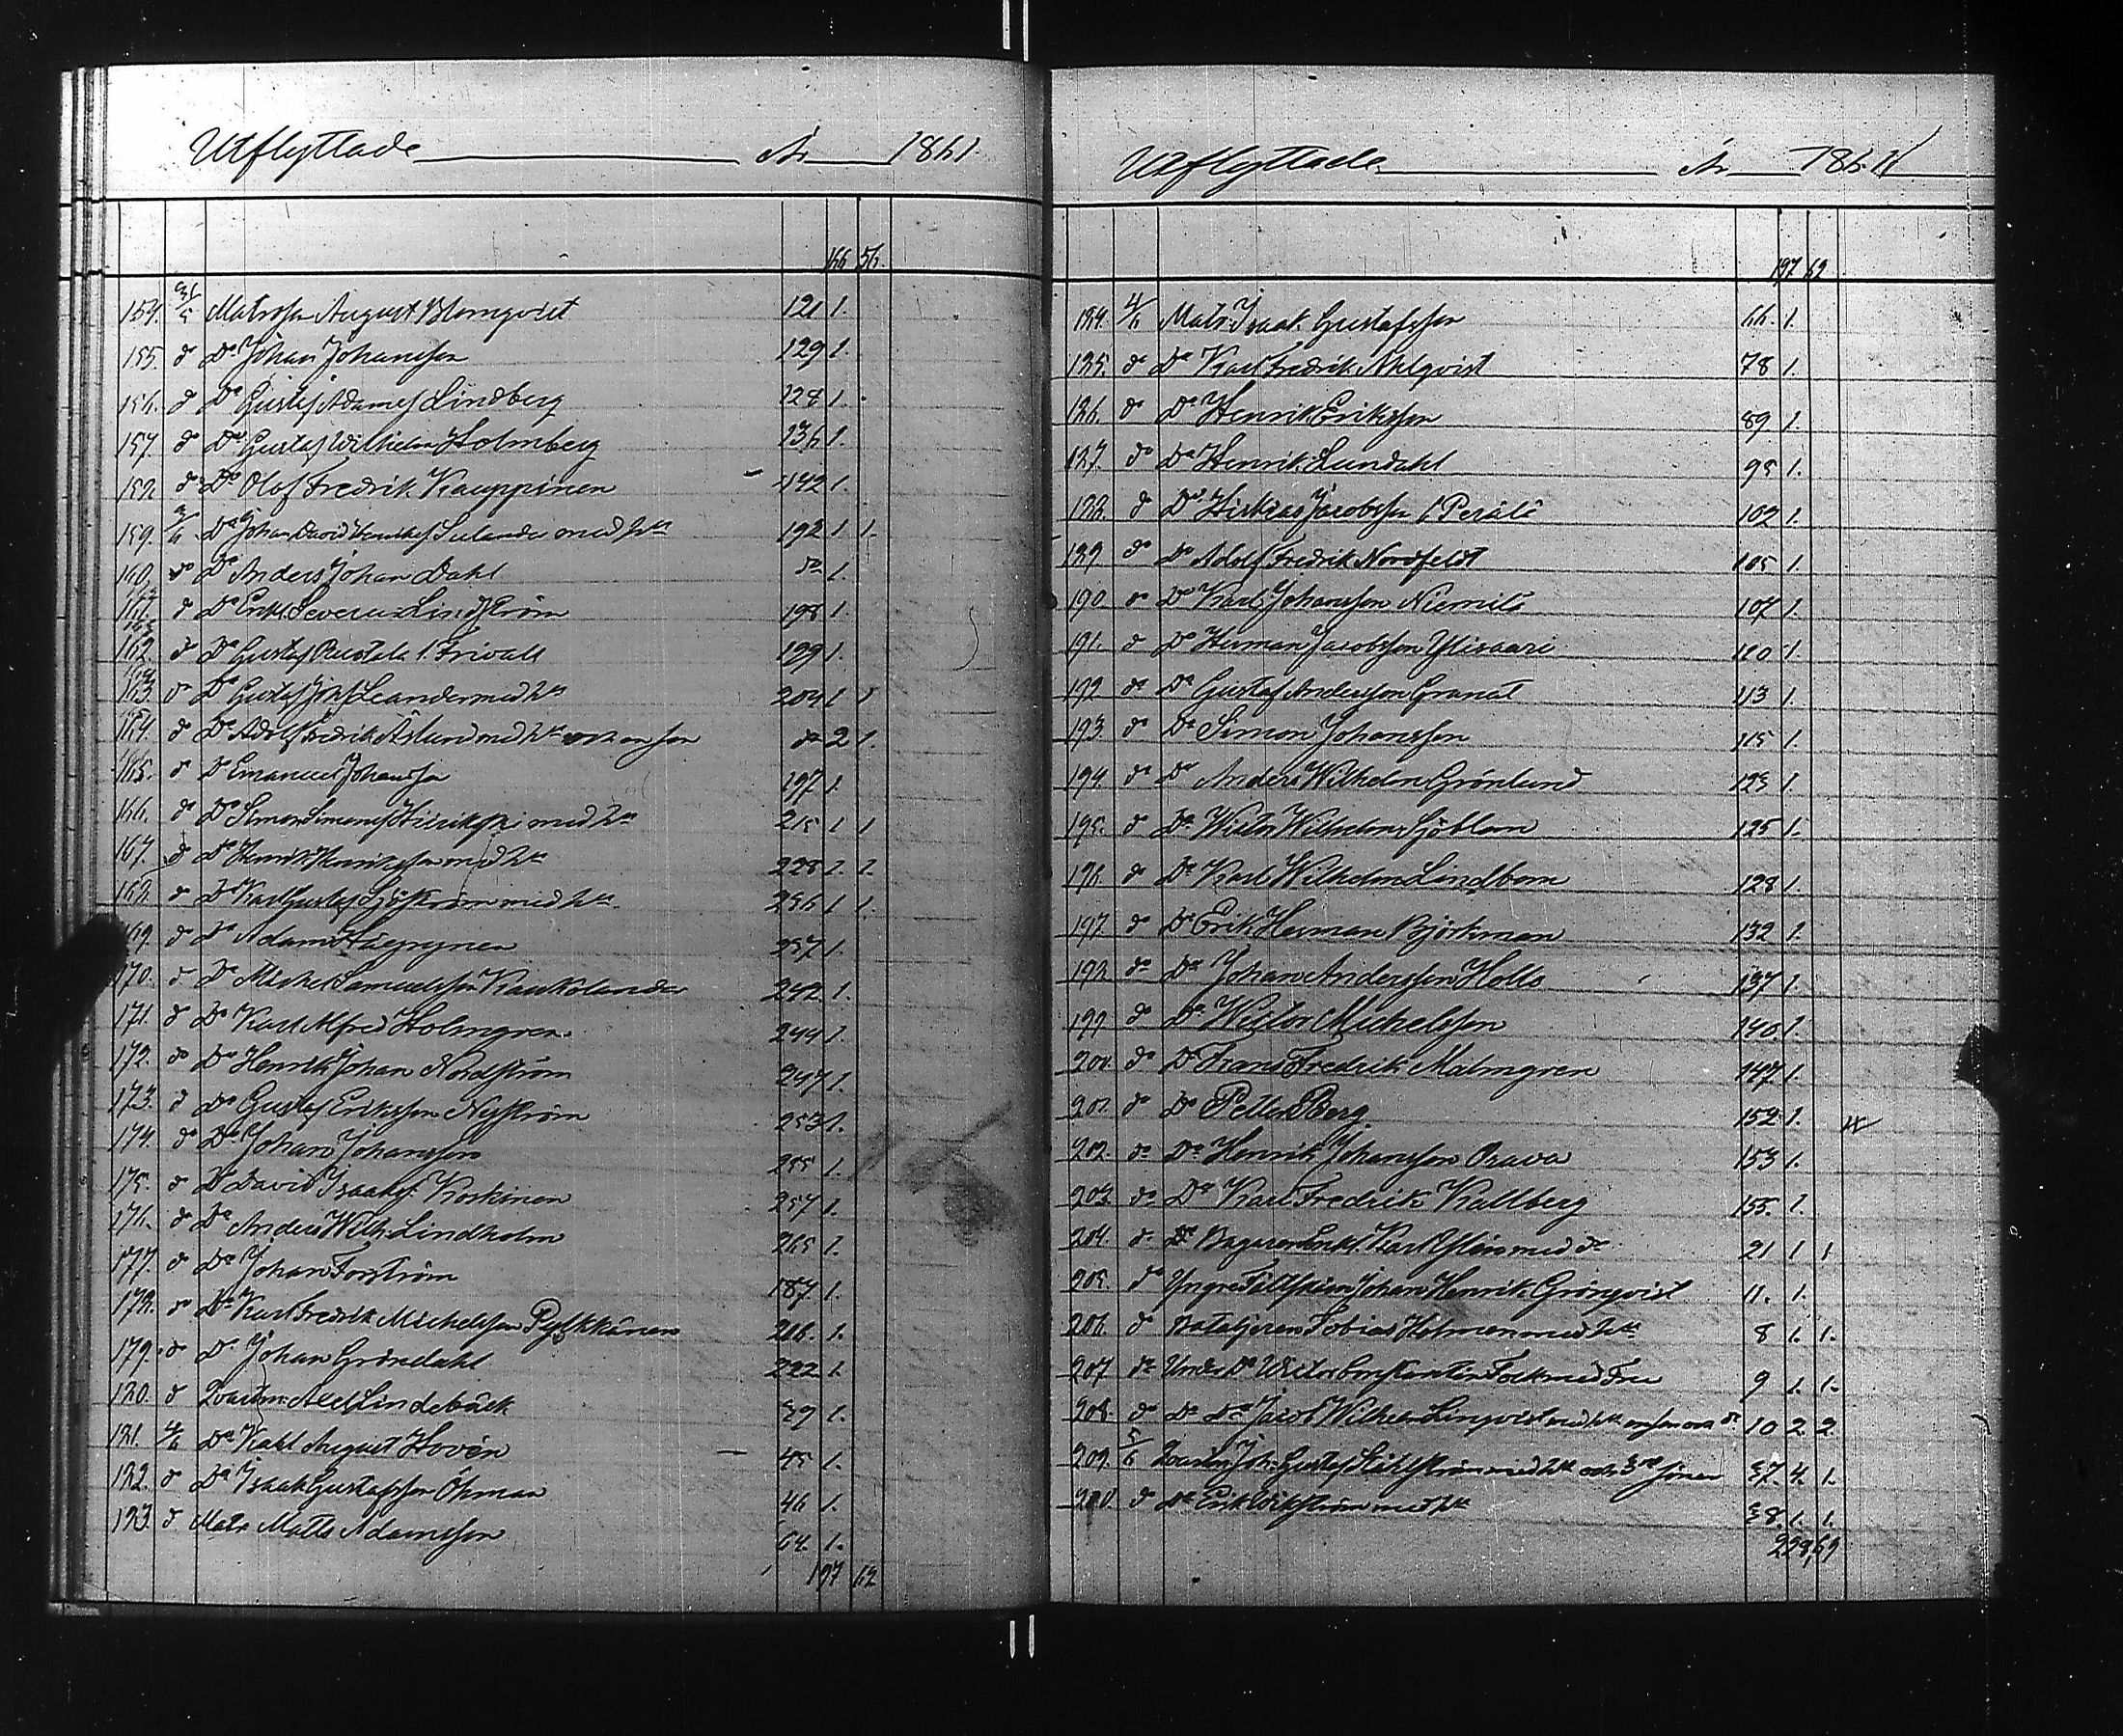 Utflyttade År 1861.
166 56.
154. 31/5 Matrosen August Blomqvist 121 1.
155. do Do Johan Johansson 129 1.
156. do Do Gustaf Adamsf Lindberg 128 1.
157. do Do Gustaf Wilhelm Holmberg 136 1.
158. do Do Olof Fredrik Kauppinen 142 1.
159. Do Johan David Selander med h:u 192 1. 1.
160. do Do Anders Johan Dahl do 1.
161. do Do Erik Severus Lindström 198 1.
162. do Do Gustaf f. Frivall 199 1.
163. do Do Gustaf Josef Leander med h:u 204 1 1
164. do Do Adolf Fredrik Åslund med h:u och en son do 2 1.
165. do Do Emanuel Johansson 197 1.
166. do Do Simon Simonsf med h:u 215 1 1
167. do Do Henrik Henriksson med h:u 228 1. 1.
168. do Do Karl Gustaf Sjöström med h:u 236 1 1.
169. do Do Adam 237 1.
170. do Do Michel Samuelsson Kaukolander 242 1.
171. do Do Karl Alfred Holmgren 244 1.
172. do Do Henrik Johan Nordström 247 1.
173. do Do Gustaf Eriksson Nyström 253 1.
174. do Do Johan Johansson 255 1.
175. do Do David Isaaksf Koskinen 257 1.
176. do Do Anders Wilh. Lindholm 265 1.
177. do Do Johan Forström 187 1.
178. do Do Karl Fredrik Michelsson 216. 1.
179. do Do Johan Gröndahl 222 1.
180. do Qvartm: Axel Lindebäck 39 1.
181. 4/6 Do Karl August Hovén 45 1.
182. do Do Isaak Gustafsson Öhman 46 1.
183. do Matr Matts Adamsson 64. 1.
197 62
Utflyttade År 1861
197 62
184. 4/6 Matr: Isaak Gustafsson 66. 1.
185. do Do Karl Fredrik Ahlqvist 78 1.
186. do Do Henrik Eriksson 89 1.
187. do Do Henrik Lundahl 95 1.
188. do Do Hiskias Jacobsson f Perälä 102 1.
189. do Do Adolf Fredrik Nordfeldt 105 1.
190 do Do Karl Johansson Niemilä 107 1.
191. do Do Herman Jacobsson Ylisaari 110 1.
192 do Do Gustaf Andersson Granat 113 1.
193. do Do Simon Johansson 115 1.
194. do Do Anders Wilhelm Grönlund 123 1.
195. do Do Victor Wilhelm Sjöblom 125 1.
196. do Do Karl Wilhelm Lindbom 128 1.
197. do Do Erik Herman Björkman 132 1.
198. do Do Johan Andersson Hollo 137 1.
199 do Do Victor Michelsson 140. 1.
200. do Do Frans Fredrik Malmgren 147 1.
201. do Do Petter Berg 152 1.
202. do Do Henrik Johansson Orava 153 1.
203. do Do Karl Fredrik Kullberg 155. 1.
204. do Bagaren Karl med do 21 1 1
205. do Yngre Johan Henrik Grönqvist 11. 1.
206. do Tobias Holmen med h:u 8 1. 1.
207 do Under Do Victor Constantin Fock med Fru 9 1. 1.
208. do Do Do Jacob Wilhelm Linqvist med h:u en son 10 2 2
209. 5/6 Qvartm Joh: Gustaf Stålström med h:u och 3ne söner 37. 4. 1.
210. do Do Erik Wikström med h:u 38. 1. 1.
228 69